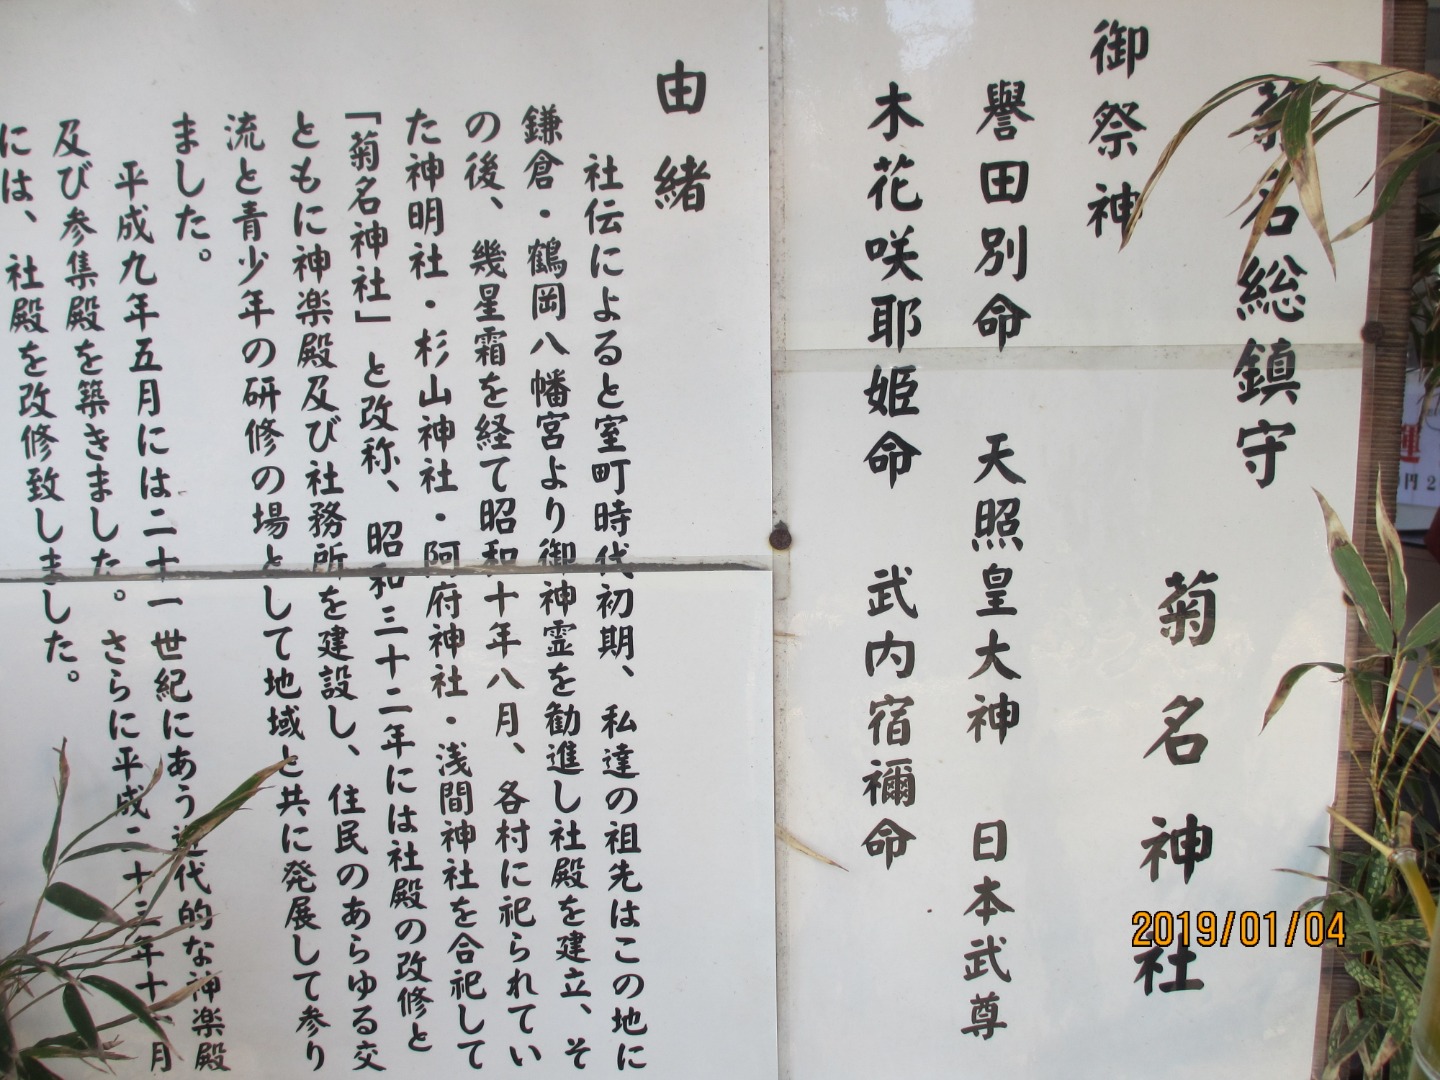 菊名総鎮守
菊名神社
御祭神
譽田別命 天照皇大神 日本武尊
木花咲耶姫命 武内宿禰命
由緒
社伝によると室町時代初期、私達の祖先はこの地に
鎌倉・鶴岡八幡宮より御神霊を勧進し社殿を建立、そ
の後、幾星霜を経て昭和十年八月、各村に祀られてい
た神明社・杉山神社・阿府神社・浅間神社を合祀して
「菊名神社」と改称、昭和三十二年には社殿の改修と
ともに神楽殿及び社務所を建設し、住民のあらゆる交
流と青少年の研修の場として地域と共に発展して参り
ました。
平成九年五月には二十一世紀にあう近代的な神楽殿
及び参集殿を築きました。さらに平成二十三年十一月
には、社殿を改修致しました。
円2
2019/01/04